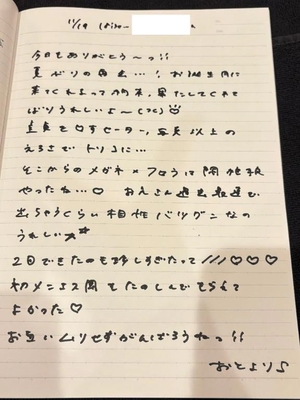 11/19
今日もありがとう〜っ!!
夏ぶりの再会…! お誕生日に
来てくれるって約束、果たしてくれて
ばりうれしいよ〜
直良です セーター、写真以上の
えろさで トリコに…
そこからのメガネ×フロラは関係性
やったね…♡ おえさん過去最速で
出ちゃうくらい相性バツグンなの
うれしい☆
2回できたのも珍しすぎたって///♡♡♡
初メンエス2周もたのしんでもらえて
よかった♡
お互いムリせずがんばろうねっ!!
おとより